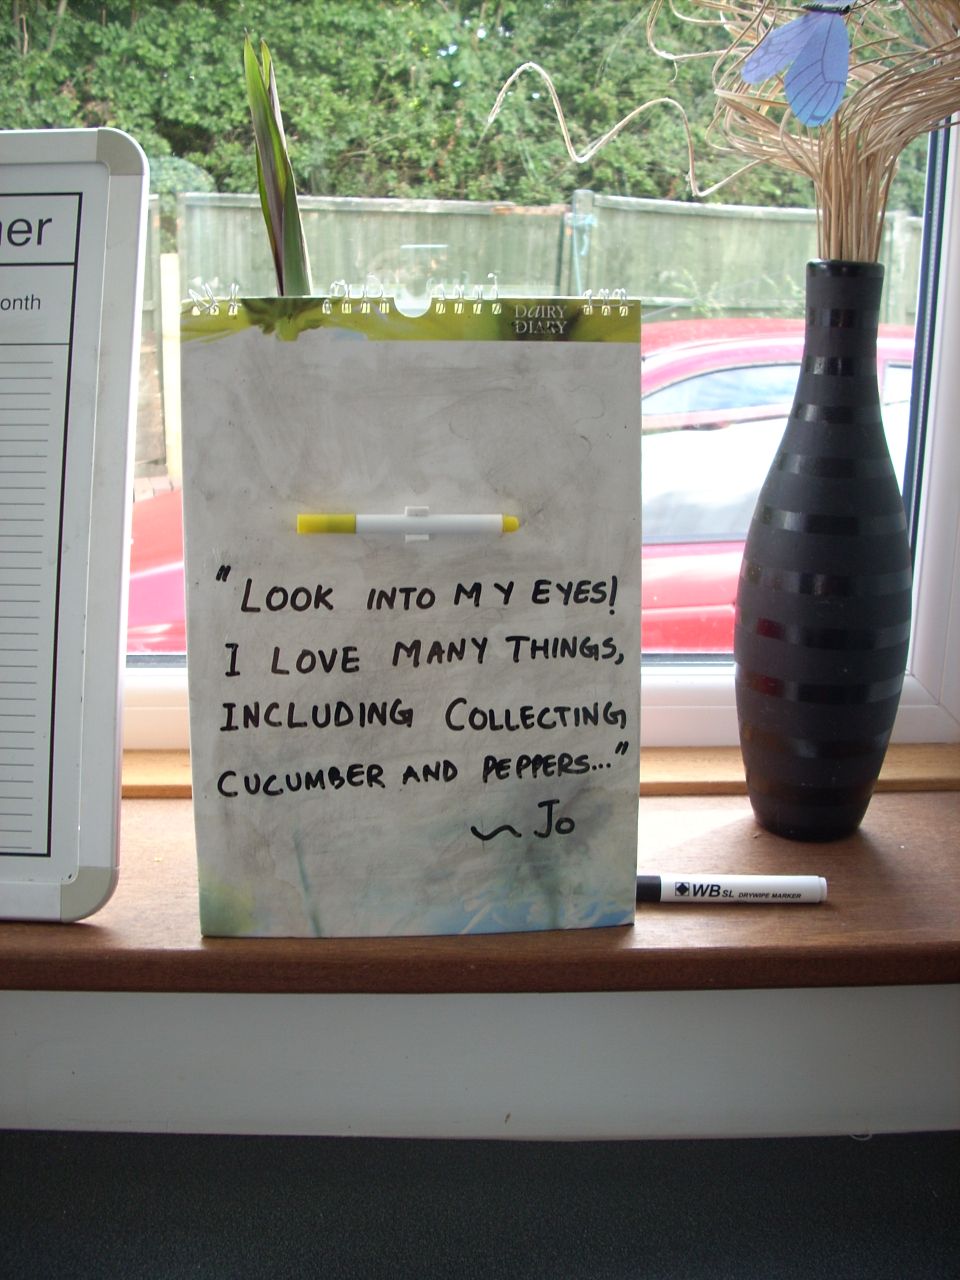 ner
onth
DAIRY
DIARY
"LOOK INTO MY EYES!
I LOVE MANY THINGS,
INCLUDING COLLECTING
CUCUMBER AND PEPPERS..."
~ Jo
WB SL DRYWIPE MARKER